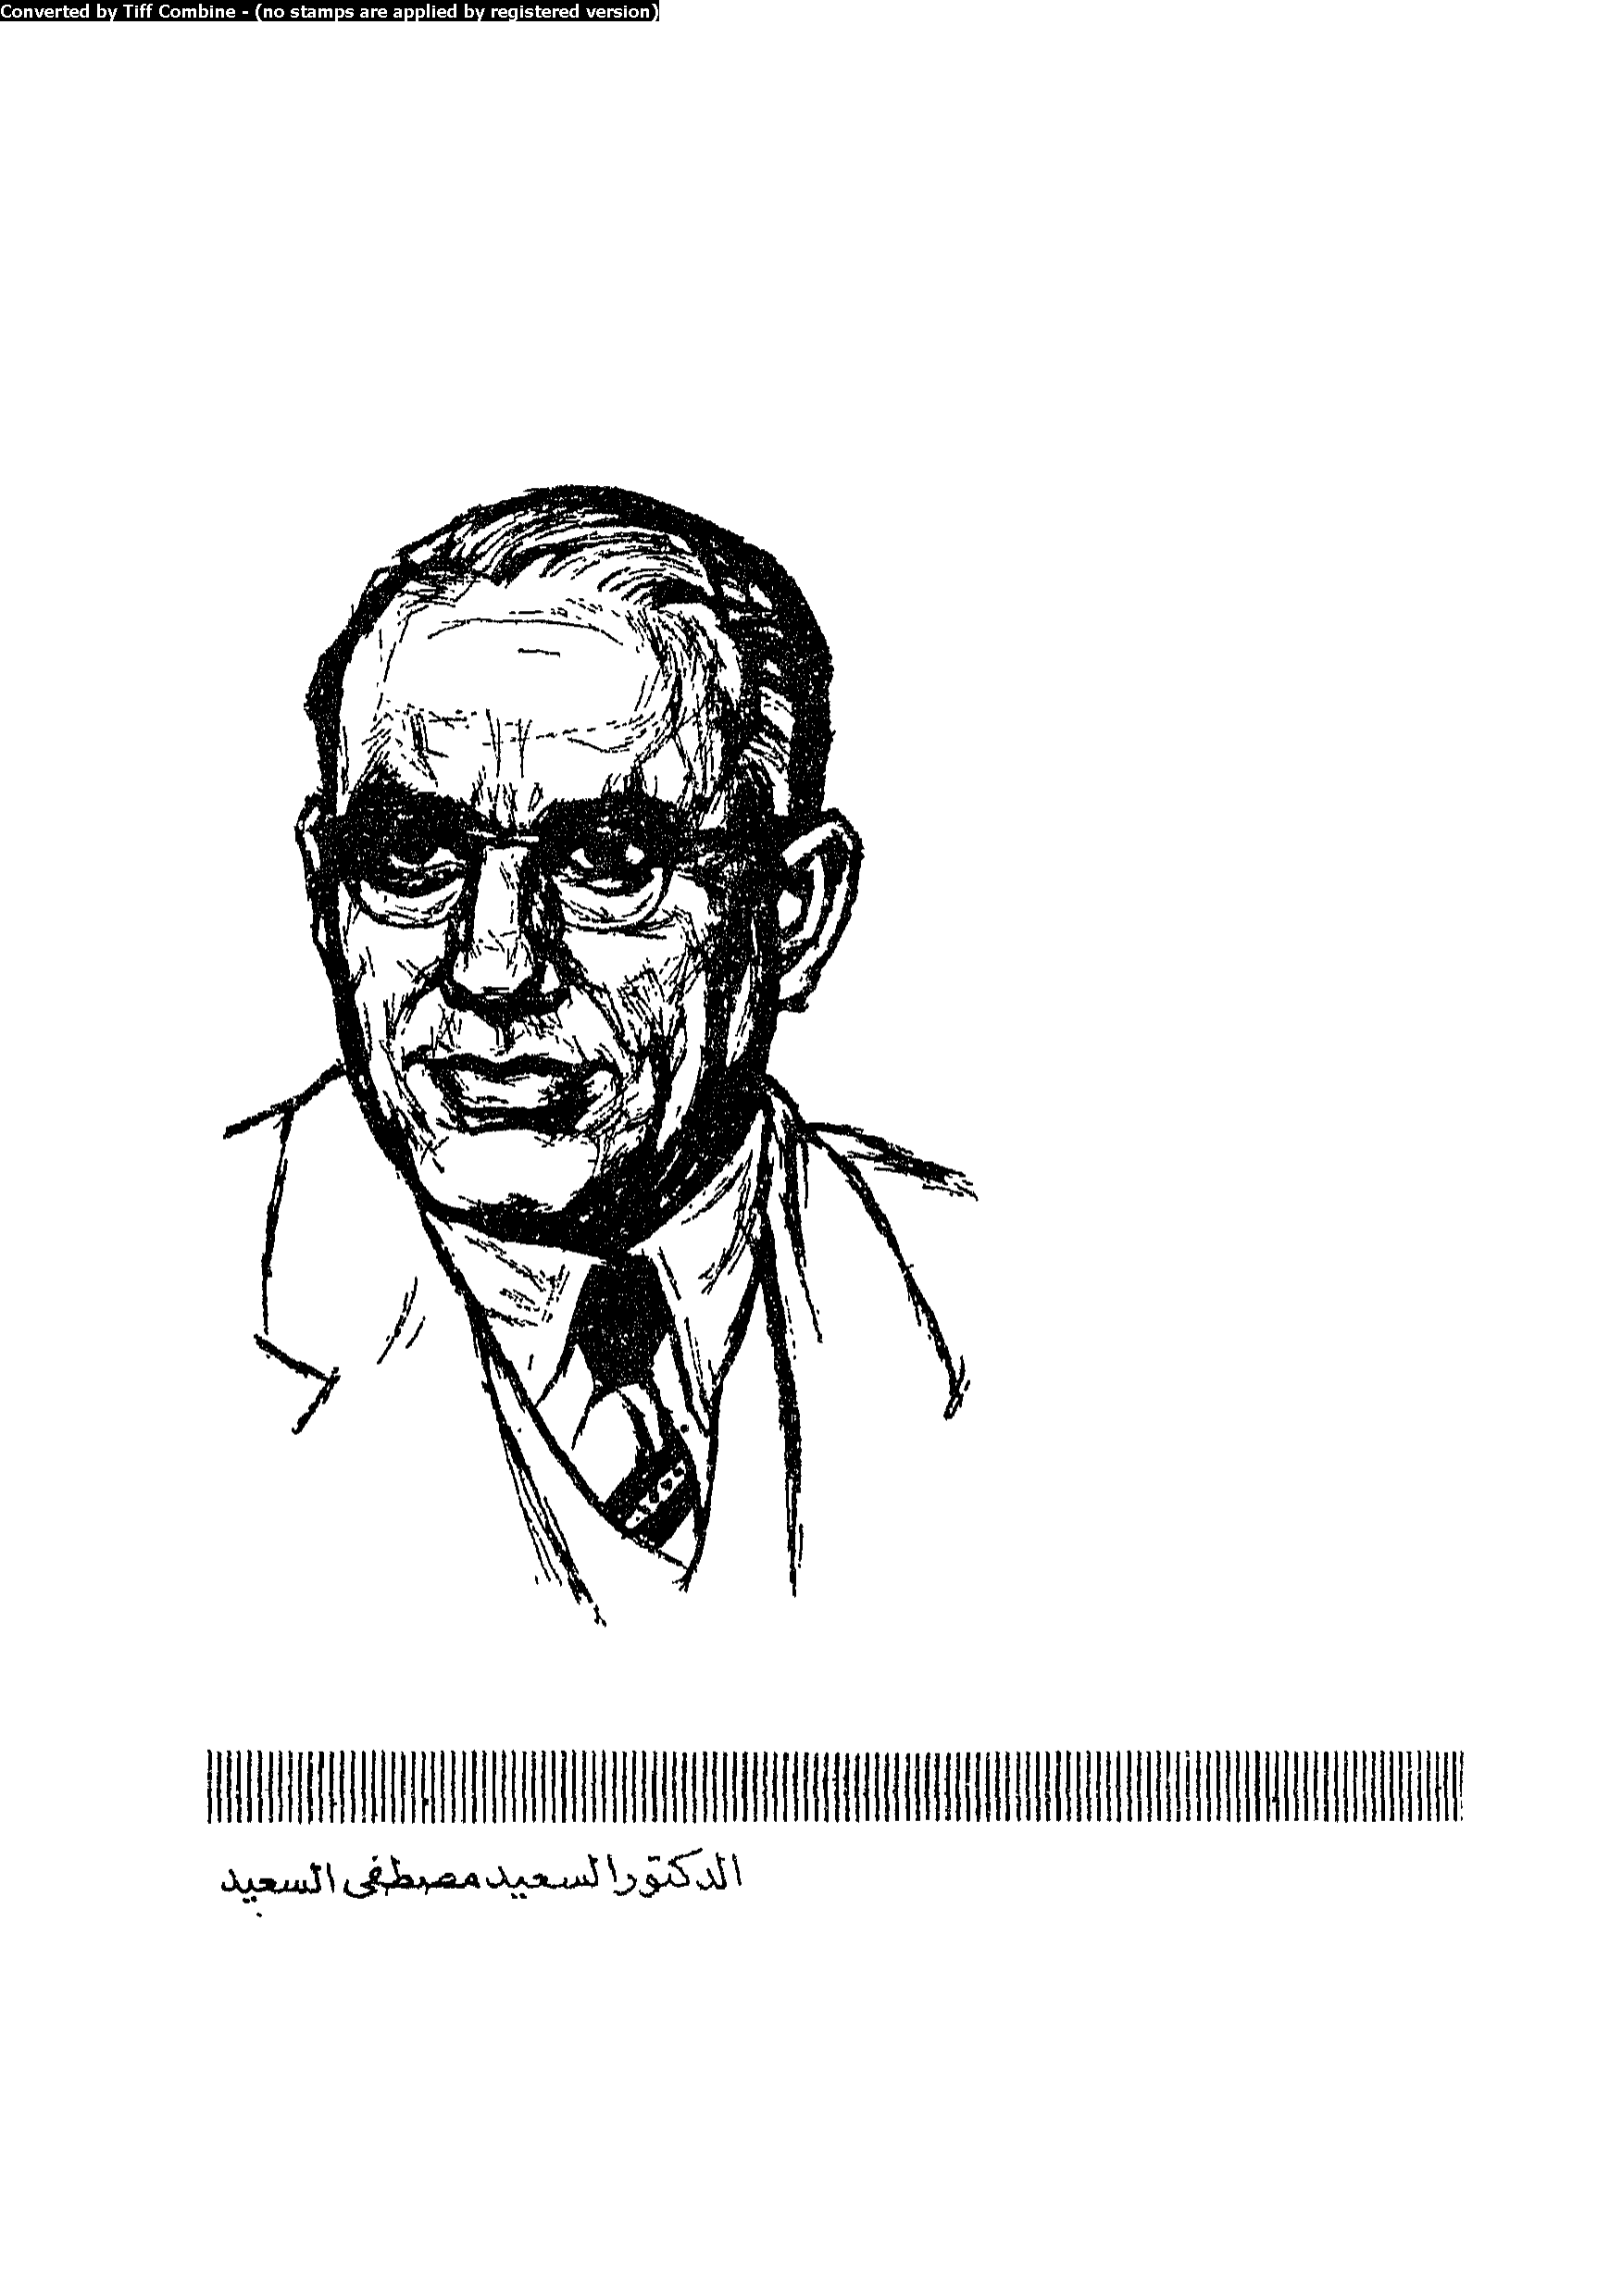 Converted by Tiff Combine - (no stamps are applied by registered version)
الدكتور السعيد مصطفى السعيد